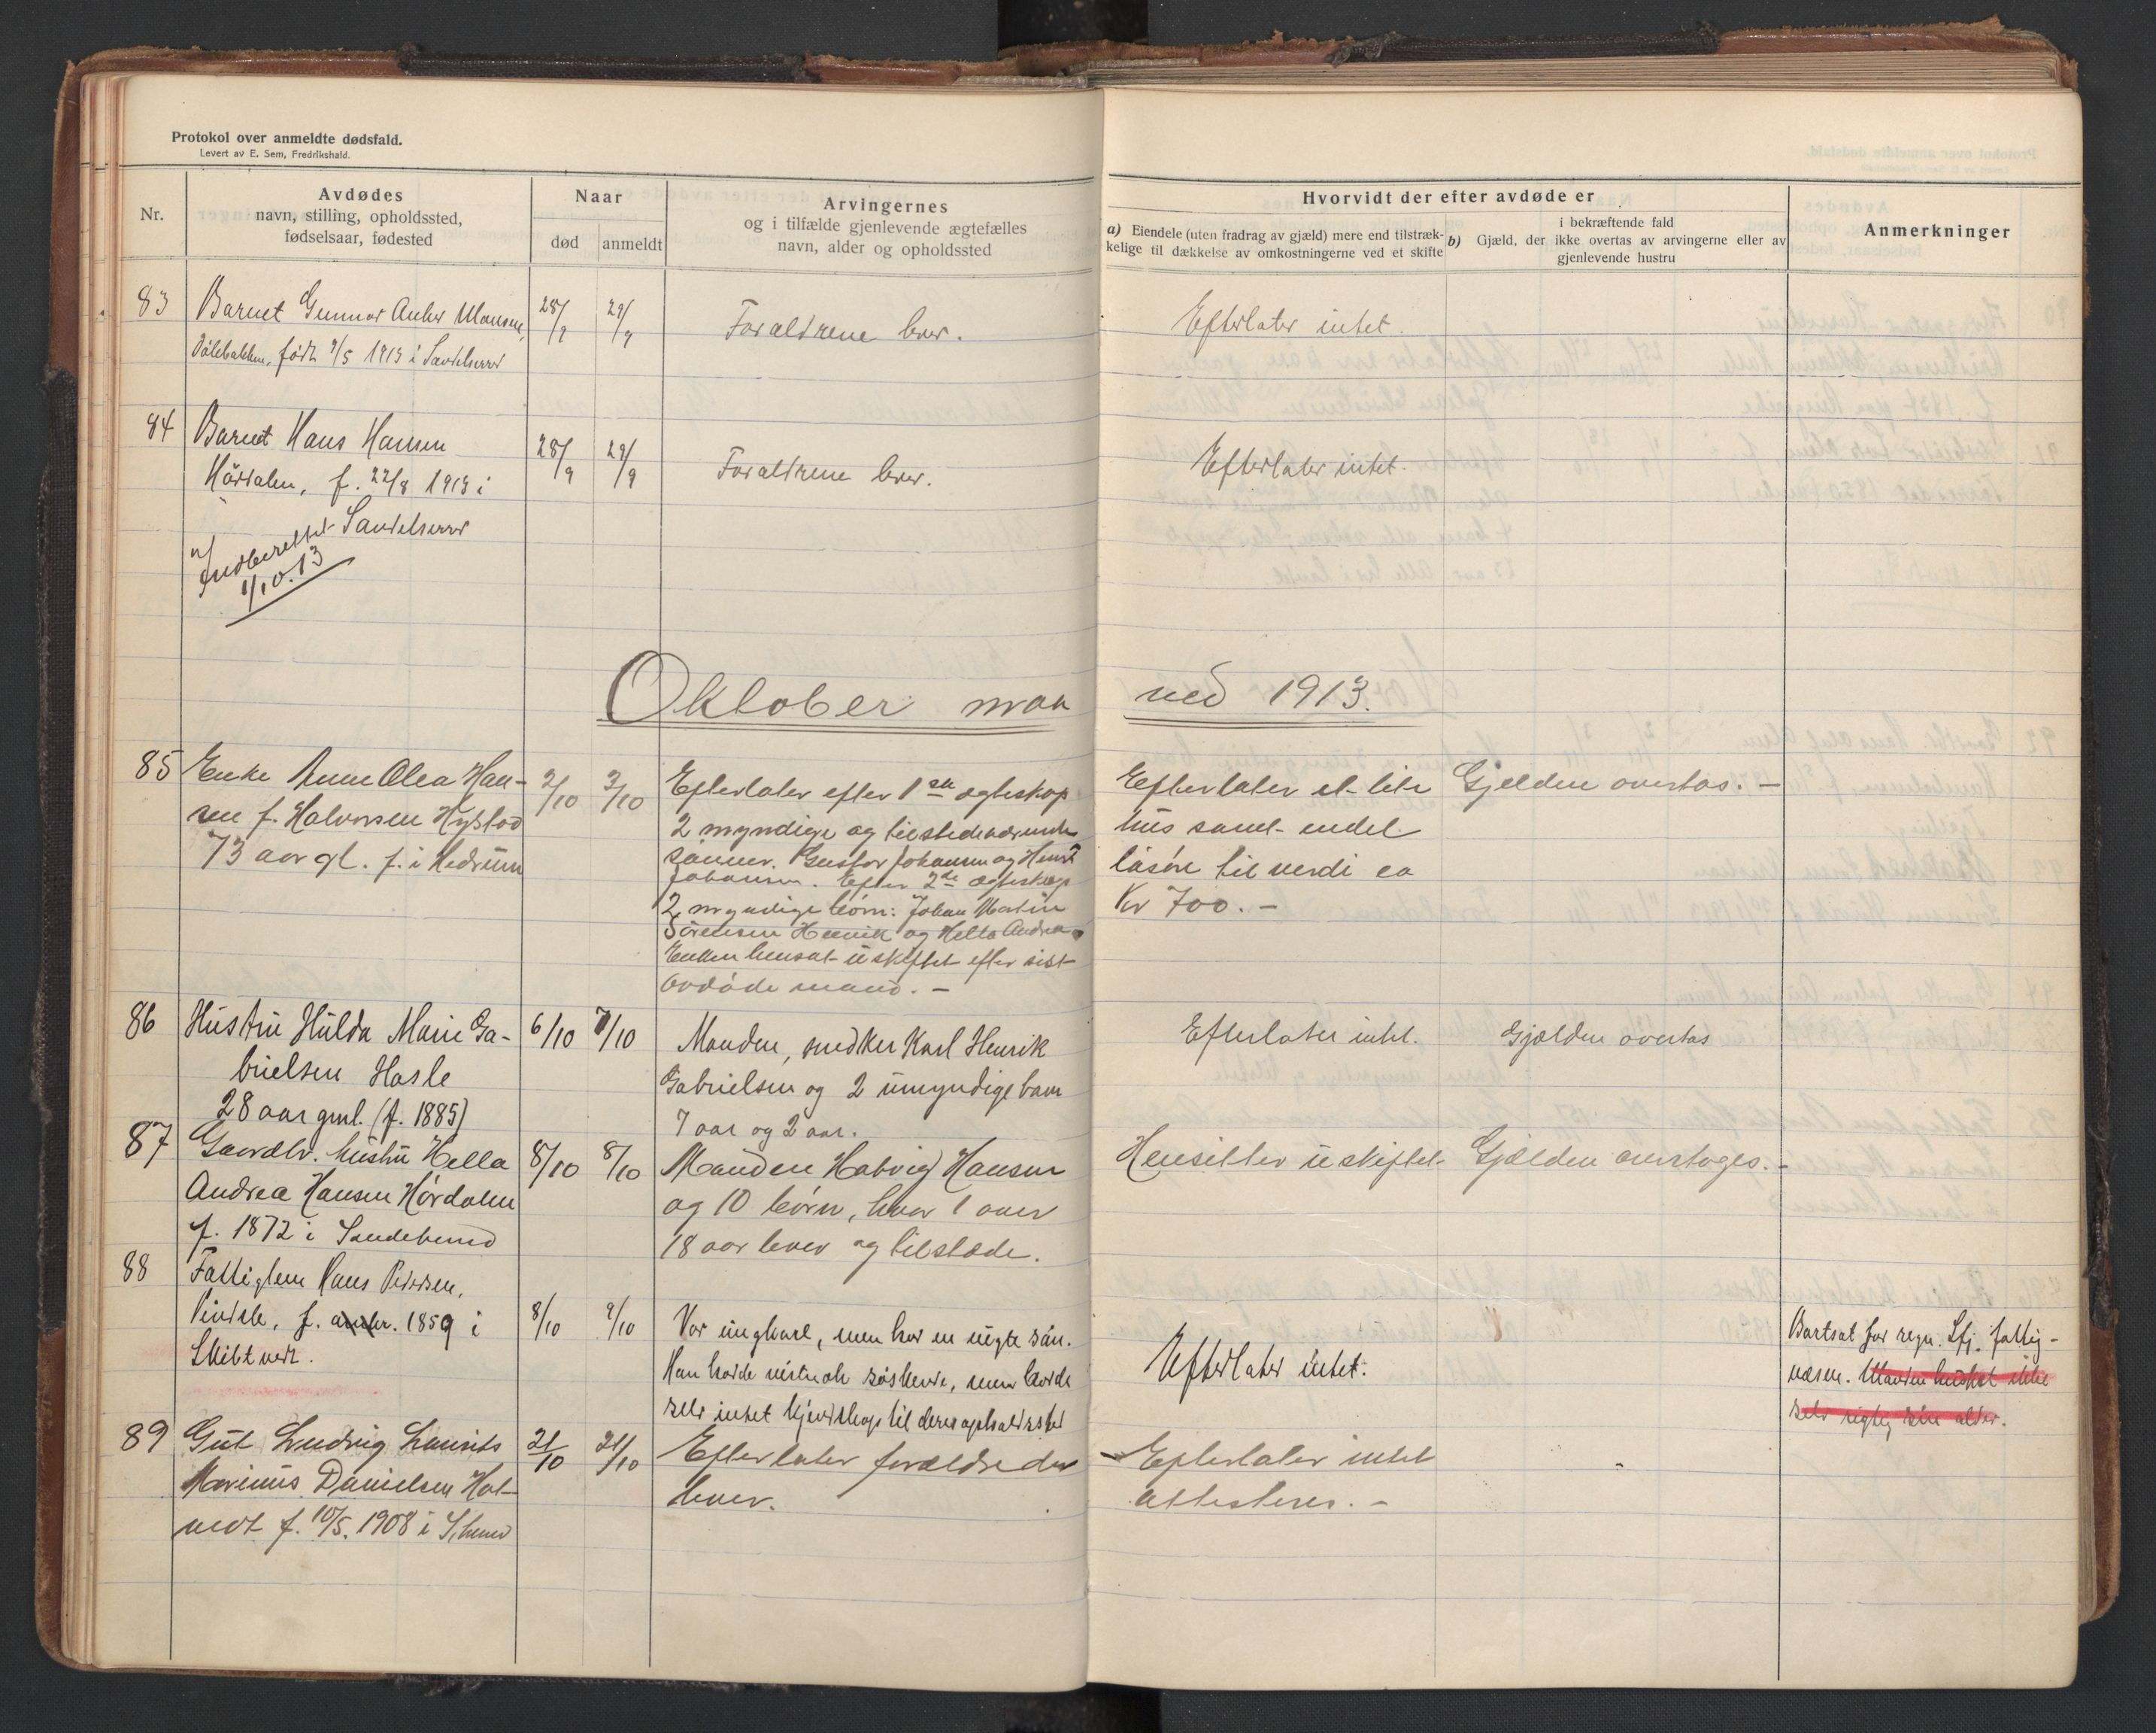 Protokol over anmeldte dødsfald.
Levert av E. Sem, Fredrikshald.
Nr.
Avdødes
navn, stilling, opholdssted,
fødselsaar, fødested
Naar
død
anmeldt
Arvingernes
og i tilfælde gjenlevende ægtefælles
navn, alder og opholdssted
Hvorvidt der efter avdøde er
a) Eiendele (uten fradrag av gjæld) mere end tilstræk-
kelige til dækkelse av omkostningerne ved et skifte
i bekræftende fald
b) Gjæld, der ikke overtas av arvingerne eller av
gjenlevende hustru
Anmerkninger
83
Barnet Gunnar Anker
født 9/5 1913 i Sandeherred
28/9
29/9
Forældrene lever.
Efterlater intet.
84
Barnet Hans Hansen
Hørdalen, f. 22/8 1913 i
Sandeherred
28/9
29/9
Forældrene lever.
Efterlater intet.
Indberettet
1/10.13
Oktober maa
ned 1913.
85
Enke Anne Olea Han-
sen f. Halvorsen Hystad
73 aar gl. f. i Hedrum
2/10
3/10
Efterlater efter 1ste ægteskap
2 myndige og tilstedeværende
sønner. Gustav Johansen og
Johansen. Efter 2de ægteskap
2 myndige børn: Johan Martin
Sørensen og Hella Andrea.
Enken hensat i uskiftet efter sist
avdøde mand. -
Efterlater et lite
hus samt endel
løsøre til verdi ca
Kr 700. -
Gjelden overtas. -
86
Hustru Hulda Marie Ga-
brielsen Hasle
28 aar gml. (f. 1885)
6/10
7/10
Manden, snedker Karl Henrik
Gabrielsen og 2 umyndige barn
7 aar og 2 aar.
Efterlater intet.
Gjælden overtas
87
Gaardbr. hustru Hella
Andrea Hansen Hørdalen
f. 1872 i Sandeherred
8/10
8/10
Manden Hansen
og 10 børn, hvor 1 over
18 aar lever og tilstede.
Hensitter i uskiftet
Gjælden overtages. -
88
Fattiglem Hans Pedersen,
Vindale, f. 1859 i
Skibtvedt.
8/10
9/10
Var ungkarl, men har en uegte søn.
Han havde vistnok søskende, men havde
selv intet kjendskap til deres opholdssted
Efterlater intet.
Bortsat for regn. fattig-
væsen. Manden husket ikke
selv rigtig sin alder.
89
Gut Ludvig Laurits
Marinius Danielsen Hol-
tvedt f. 10/5. 1908 i S.herred
21/10
21/10
Efterlater forældre der
lever.
Efterlater intet
attesteres. -